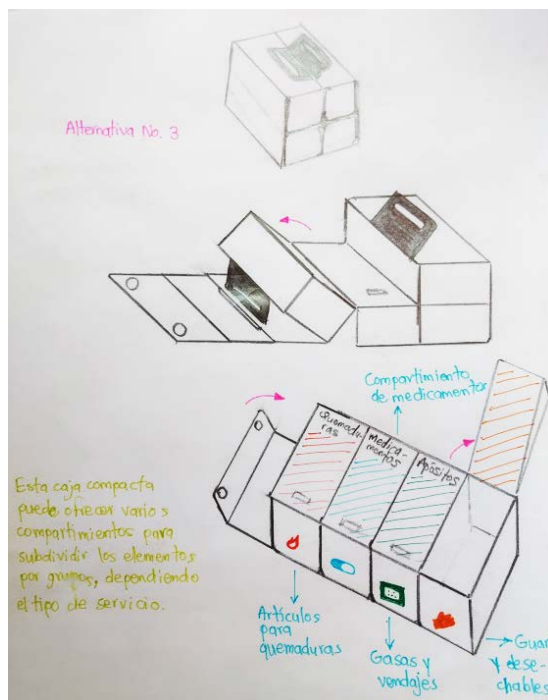 Alternativa No. 3
Compartimiento
de medicamentos
Quemadu-
ras
Medica-
mentos
Apósitos
Esta caja compacta
puede ofrecer varios
compartimientos para
subdividir los elementos
por grupos, dependiendo
el tipo de servicio.
Artículos
para
quemaduras
Gasas y
vendajes
y dese-
chables